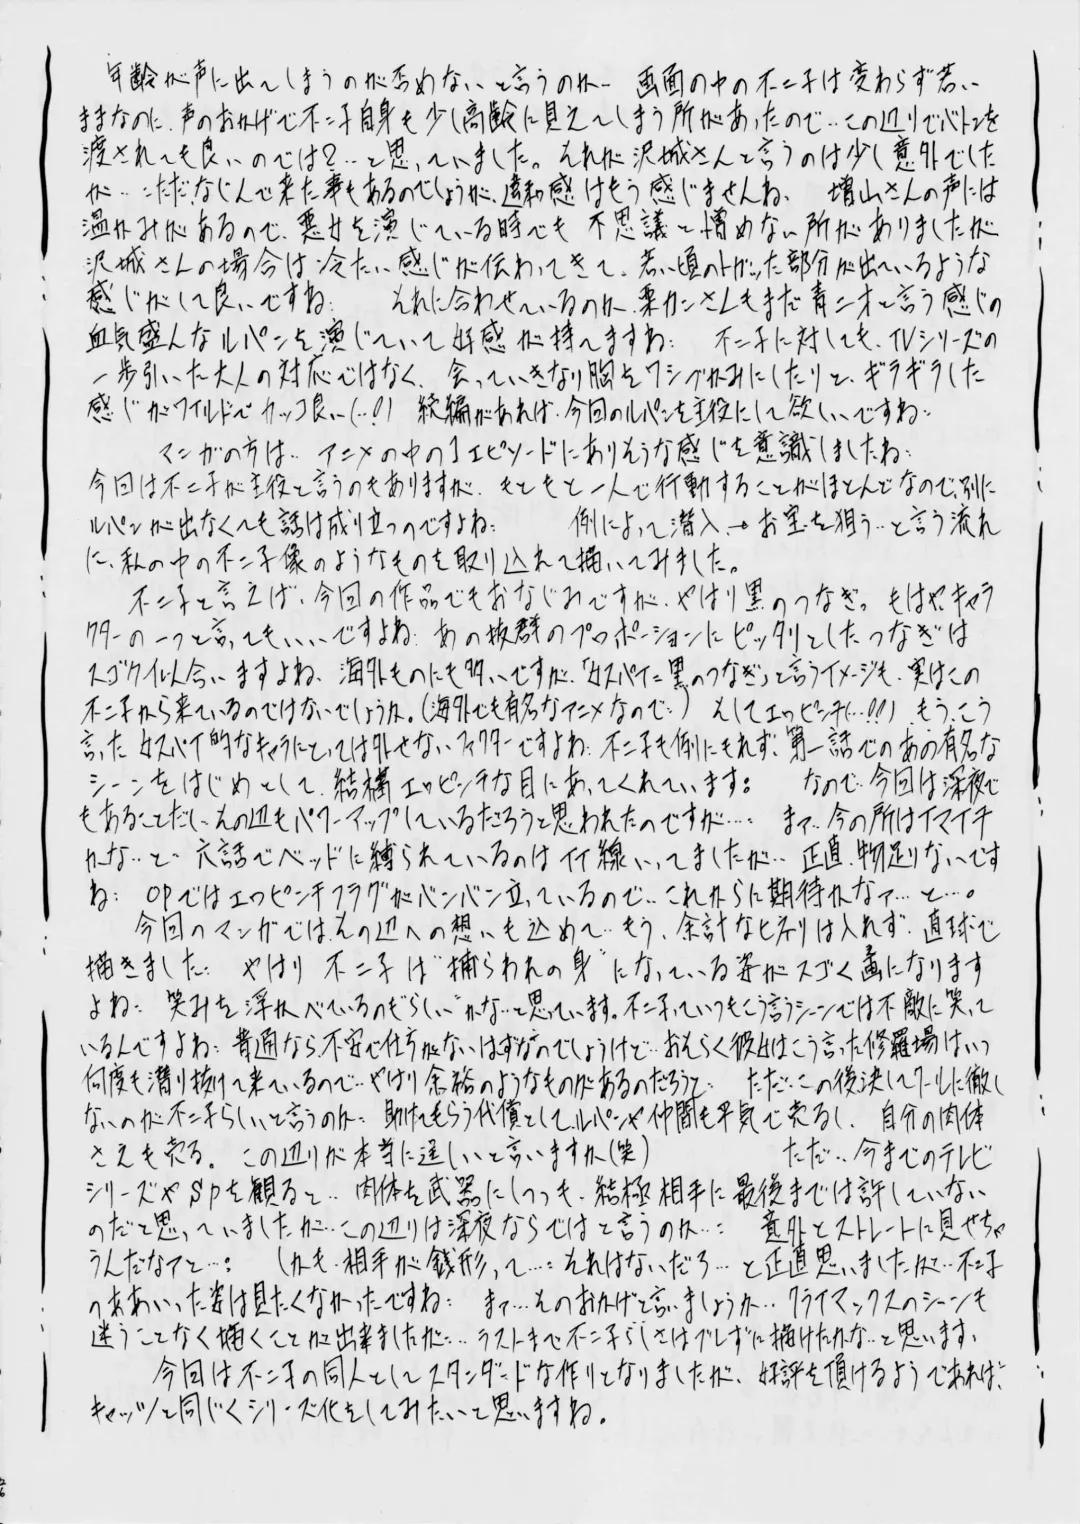 年齢が声に出てしまうのが否めないと言うのか… 画面の中の不二子は変わらず若い
ままなのに、声のおかげで不二子自身も少し高齢に見えてしまう所があったので…この辺りでバトンを
渡されても良いのでは?…と思っていました。それが沢城さんと言うのは少し意外でした
が…ただ、なじんで来た事もあるのでしょうが、違和感はもう感じませんね、 増山さんの声には
温かみがあるので、悪女を演じている時でも不思議と憎めない所がありましたが
沢城さんの場合は冷たい感じが伝わってきて、若い頃のトガッた部分が出ているような
感じがして良いですね: それに合わせているのか、栗カンさんもまだ青二才と言う感じの
血気盛んなルパンを演じていて好感が持てますね: 不二子に対しても、TVシリーズの
一歩引いた大人の対応ではなく、会っていきなり胸をワシヅかみにしたりと、ギラギラした
感じがワイルドでカッコ良い(…!) 続編があれば、今回のルパンを主役にして欲しいですね…
マンガの方は… アニメの中の1エピソードにありそうな感じを意識しましたね:
今回は不二子が主役と言うのもありますが、もともと一人で行動することがほとんどなので、別に
ルパンが出なくても話は成り立つのですよね: 例によって潜入→お宝を狙う…と言う流れ
に、私の中の不二子像のようなものを取り込れて描いてみました。
不二子と言えば、今回の作品でもおなじみですが、やはり黒のつなぎっ もはや、キャラ
クターの一つと言ってもいいですよね: あの抜群のプロポーションにピッタリとしたつなぎは
スゴク似合いますよね、海外ものにも多いですが、「女スパイ=黒のつなぎ」と言うイメージも、実はこの
不二子から来ているのではないでしょうか。(海外でも有名なアニメなので…) そしてエッピンチ(…!!) もう、こう
言った女スパイ的なキャラにとっては外せないファクターですよね: 不二子も例にもれず、第一話でのあの有名な
シーンをはじめとして、結構エッピンチな目にあってくれています: なので、今回は深夜で
もあることだし、その辺もパワーアップしているだろうと思われたのですが…: まァ…今の所はイマイチ
かな…と… 六話でベッドに縛られているのはイイ線いってましたが… 正直、物足りないです
ね: OPではエッピンチフラグがバンバン立っているので…これからに期待かなァ…と…。
今回のマンガでは、その辺への想いも込めて… もう、余計なヒネリは入れず、直球で
描きました: やはり 不二子は"捕らわれの身"になっている姿がスゴく画になります
よね: 笑みを浮かべているのも"らしい"かな…と思っています。不二子っていつもこう言うシーンでは不敵に笑って
いるんですよね: 普通なら、不安で仕方がないはずなのでしょうけど…おそらく彼女はこう言った修羅場はいつ
何度も潜り抜けて来ているので…やはり余裕のようなものがあるのだろうと… ただ…この後決してクールに徹し
ないのが不二子らしいと言うのか: 助けてもらう代償としてルパンや仲間も平気で売るし、自分の肉体
さえも売る。この辺りが本当に逞しいと言いますか(笑) ただ…今までのテレビ
シリーズやSpを観ると…肉体を武器にしつつも、結極相手に最後までは許していない
のだと思っていましたが…この辺りは深夜ならではと言うのか…: 意外とストレートに見せちゃ
うんだなァと…: しかも、相手が銭形って…:それはないだろ…と正直思いましたが…不二子
のああいった姿は見たくなかったですね: まァ…そのおかげと言いましょうか…クライマックスのシーンも
迷うことなく描くことが出来ましたが…ラストまで不二子らしさはブレずに描けたかな…と思います、
今回は不二子の同人としてスタンダードな作りとなりましたが、好評を頂けるようであれば、
キャッツと同じくシリーズ化をしてみたいと思いますね。